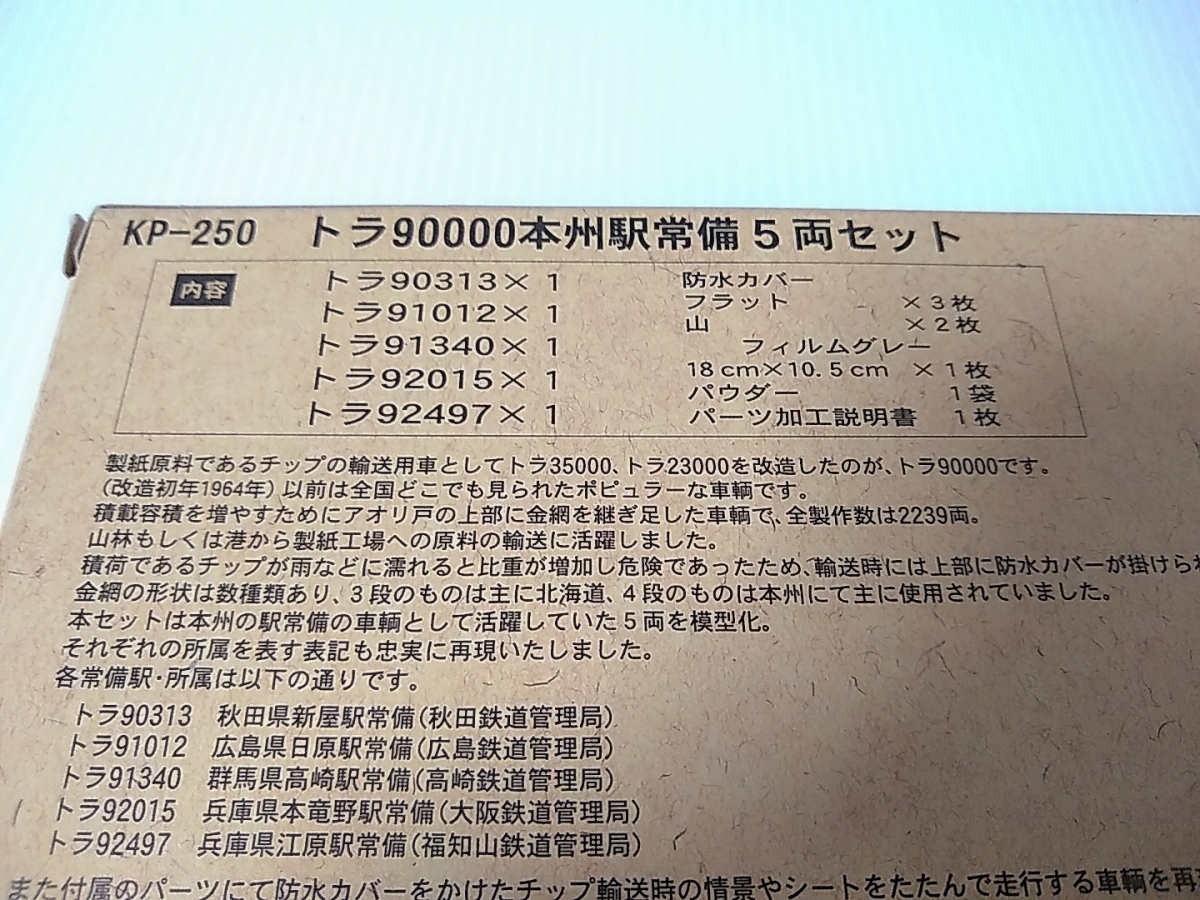 KP-250 トラ90000本州駅常備5両セット
内容
トラ90313×1
トラ91012×1
トラ91340×1
トラ92015×1
トラ92497×1
防水カバー
フラット ×3枚
山 ×2枚
フィルムグレー
18cm×10.5cm ×1枚
パウダー 1袋
パーツ加工説明書 1枚
製紙原料であるチップの輸送用車としてトラ35000、トラ23000を改造したのが、トラ90000です。
(改造初年1964年)以前は全国どこでも見られたポピュラーな車輌です。
積載容積を増やすためにアオリ戸の上部に金網を継ぎ足した車輌で、全製作数は2239両。
山林もしくは港から製紙工場への原料の輸送に活躍しました。
積荷であるチップが雨などに濡れると比重が増加し危険であったため、輸送時には上部に防水カバーが掛けられ
金網の形状は数種類あり、3段のものは主に北海道、4段のものは本州にて主に使用されていました。
本セットは本州の駅常備の車輌として活躍していた5両を模型化。
それぞれの所属を表す表記も忠実に再現いたしました。
各常備駅・所属は以下の通りです。
トラ90313 秋田県新屋駅常備(秋田鉄道管理局)
トラ91012 広島県日原駅常備(広島鉄道管理局)
トラ91340 群馬県高崎駅常備(高崎鉄道管理局)
トラ92015 兵庫県本竜野駅常備(大阪鉄道管理局)
トラ92497 兵庫県江原駅常備(福知山鉄道管理局)
また付属のパーツにて防水カバーをかけたチップ輸送時の情景やシートをたたんで走行する車輌を再現